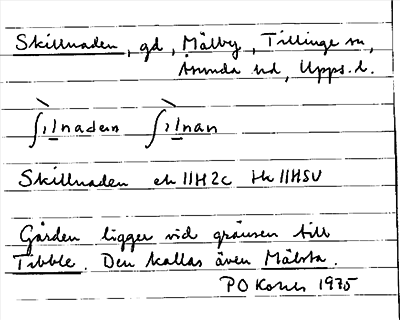 Skillnaden, gd, Mälby, Tillinge sn,
Åsunda hd, Upps. l.
Skillnaden ek 11H2c Hk 11HSV
Gården ligger vid gränsen till
Tibble. Den kallas även Mälsta.
PO 1975